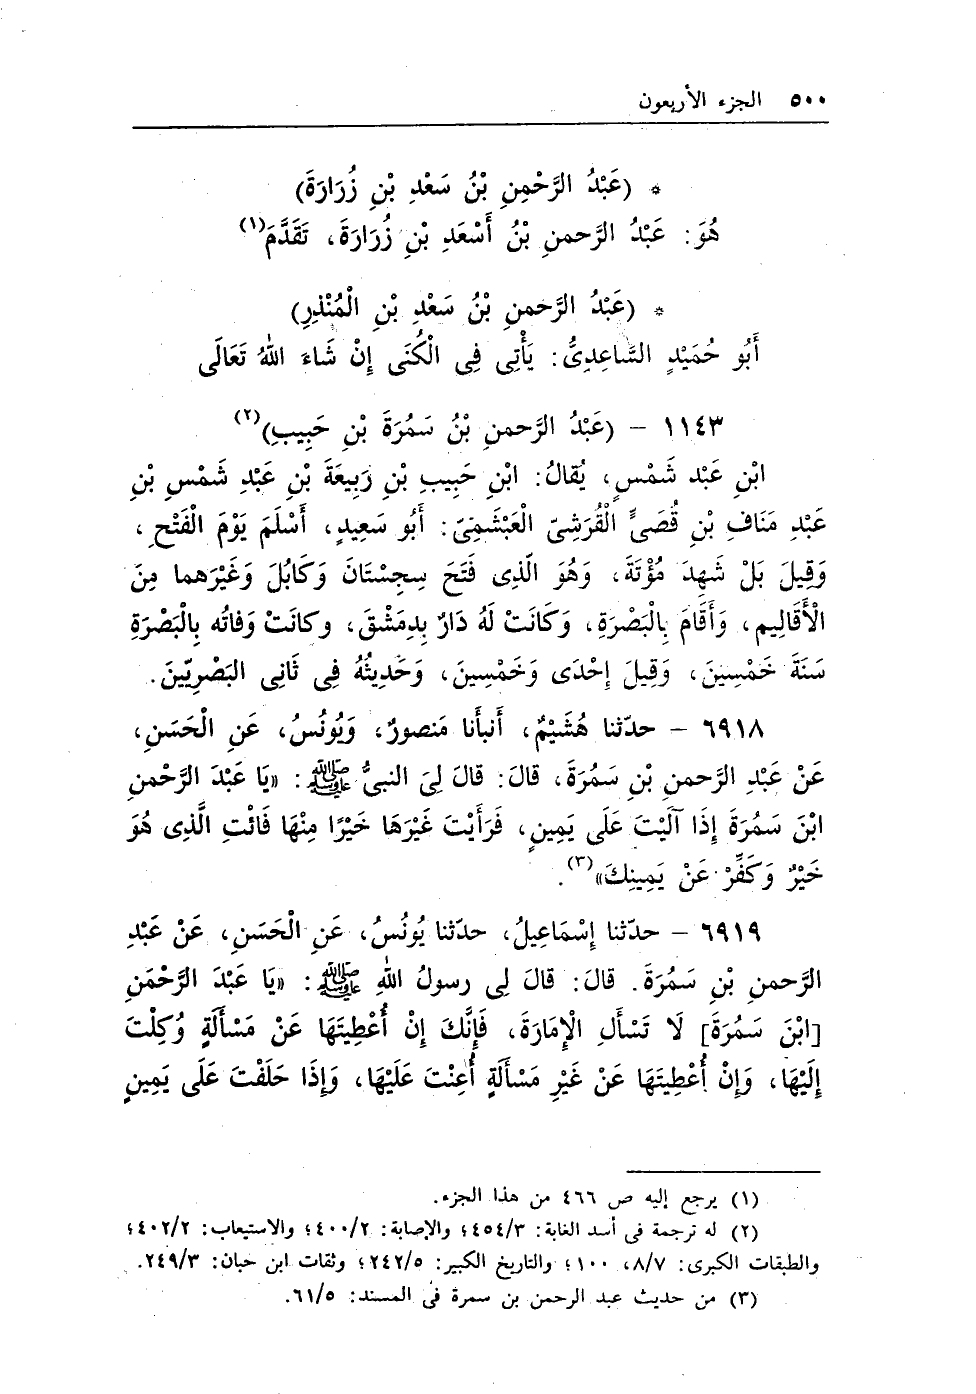 ٥٠٠ الجزء الأربعون
* (عَبْدُ الرَّحْمنِ بْنُ سَعْدِ بْنِ زُرَارَةَ)
هُوَ: عَبْدُ الرَّحمنِ بْنُ أَسْعَدِ بْنِ زُرَارَةَ، تَقَدَّمَ(١)
* (عَبْدُ الرَّحمنِ بْنُ سَعْدِ بْنِ الْمُنْذِرِ)
أَبُو حُمَيْدٍ السَّاعِدِىُّ: يَأْتِى فِى الْكُنَى إِنْ شَاءَ اللهُ تَعَالَى
١١٤٣ – (عَبْدُ الرَّحمنِ بْنُ سَمُرَةَ بْنِ حَبِيبِ)(٢)
ابْنِ عَبْد شَمْسٍ، يُقالُ: ابْنِ حَبِيبِ بْنِ رَبِيعَةَ بْنِ عَبْدِ شَمْسِ بْنِ
عَبْدِ مَنَافِ بْنِ قُصَىٍّ الْقُرَشِىّ الْعَبْشَمِىّ: أَبُو سَعِيدٍ، أَسْلَمَ يَوْمَ الْفَتْحِ،
وَقِيلَ بَلْ شَهِدَ مُؤْتَةَ، وَهُوَ الَّذِى فَتَحَ سِجِسْتَانَ وَكَابُلَ وَغَيْرَهما مِنَ
الْأَقَالِيم، وَأَقَامَ بِالْبَصْرَةِ، وَكَانَتْ لَهُ دَارٌ بِدِمَشْقَ، وكانَتْ وَفاتُه بِالْبَصْرَةِ
سَنَةَ خَمْسِينَ، وَقِيلَ إِحْدَى وَخَمْسِينَ، وَحَدِيثُهُ فِى ثَانِى البَصْرِيّينَ.
٦٩١٨ – حدّثنا هُشَيْمٌ، أَنبأَنا مَنصورٌ، وَيُونُسُ، عَنِ الْحَسَنِ،
عَنْ عَبْدِ الرَّحمنِ بْنِ سَمُرَةَ، قالَ: قالَ لِىَ النبىُّ ﷺ: «يَا عَبْدَ الرَّحْمنِ
ابْنَ سَمُرَةَ إِذَا آلَيْتَ عَلَى يَمِينٍ، فَرَأَيْتَ غَيْرَهَا خَيْرًا مِنْهَا فَائْتِ الَّذِى هُوَ
خَيْرٌ وَكَفِّرْ عَنْ يَمِينِكَ»(٣).
٦٩١٩ – حدّثنا إِسْمَاعِيلُ، حدّثنا يُونُسُ، عَنِ الْحَسَنِ، عَنْ عَبْدِ
الرَّحمنِ بْنِ سَمُرَةَ. قالَ: قالَ لِى رسولُ اللهِ ﷺ: «يَا عَبْدَ الرَّحْمَنِ
[ابْنَ سَمُرَةَ] لَا تَسْأَلِ الْإِمَارَةَ، فَإِنَّكَ إِنْ أُعْطِيتَهَا عَنْ مَسْأَلَةٍ وُكِلْتَ
إِلَيْهَا، وَإِنْ أُعْطِيتَهَا عَنْ غَيْرِ مَسْأَلَةٍ أُعِنْتَ عَلَيْهَا، وَإِذَا حَلَفْتَ عَلَى يَمِينٍ
(١) يرجع إليه ص ٤٦٦ من هذا الجزء.
(٢) له ترجمة فى أسد الغابة: ٤٥٤/٣؛ والإصابة: ٤٠٠/٢؛ والاستيعاب: ٤٠٢/٢؛
والطبقات الكبرى: ٨/٧، ١٠٠؛ والتاريخ الكبير: ٢٤٢/٥؛ وثقات ابن حبان: ٢٤٩/٣.
(٣) من حديث عبد الرحمن بن سمرة فى المسند: ٦١/٥.